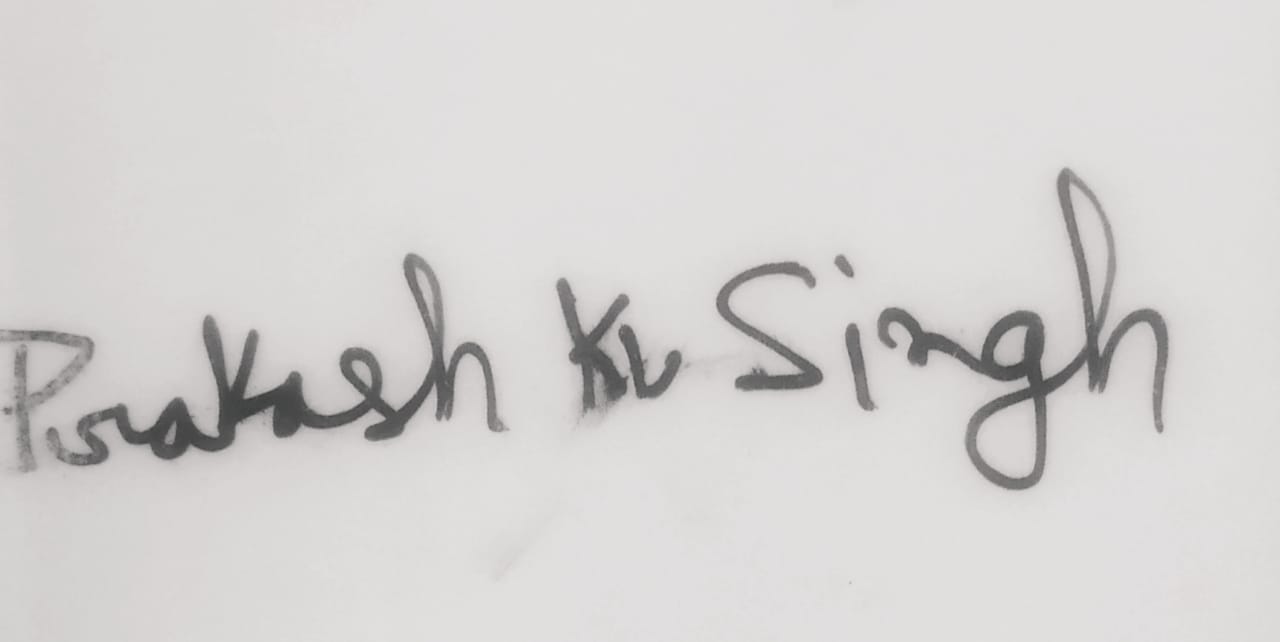 Prakash Ku Singh